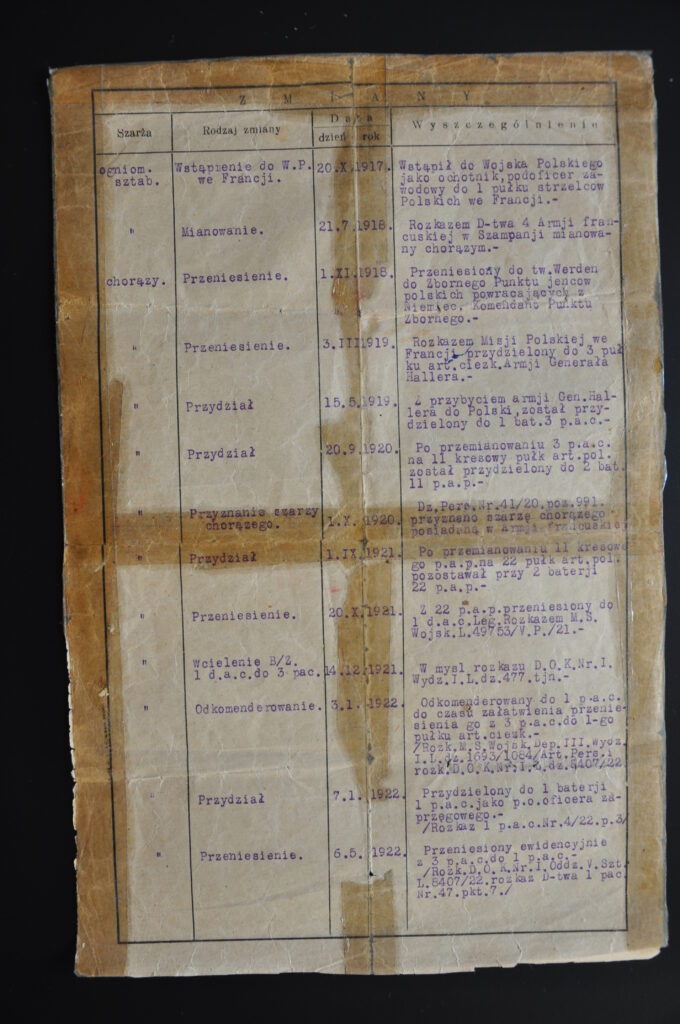 ZMIANY
Szarża Rodzaj zmiany Data dzień rok Wyszczególnienie
ogniom. Wstąpienie do W.P. 20.X.1917. Wstąpił do Wojska Polskiego
sztab. we Francji. jako ochotnik,podoficer za-
wodowy do 1 pułku strzelców
Polskich we Francji.-
" Mianowanie. 21.7.1918. Rozkazem D-twa 4 Armji fran-
cuskiej w Szampanji mianowa-
ny chorążym.-
chorąży. Przeniesienie. 1.XI.1918. Przeniesiony do tw.Werden
do Zbornego Punktu jencow
polskich powracających z
Niemiec. Komendant Punktu
Zbornego.-
" Przeniesienie. 3.III1919. Rozkazem Misji Polskiej we
Francji przydzielony do 3 puł
ku art.ciezk.Armji Generała
Hallera.-
" Przydział 15.5.1919. Z przybyciem armji Gen.Hal-
lera do Polski,został przy-
dzielony do 1 bat.3 p.a.c.-
" Przydział 20.9.1920. Po przemianowaniu 3 p.a.c.
na 11 kresowy pułk art.pol.
został przydzielony do 2 bat.
11 p.a.p.-
" Przyznanie szarzy Dz.Pers.Nr.41/20.poz.991.
chorążego. 1.X. 1920. przyznano szarżę chorążego
posiadaną w Armji francuskiej
" Przydział 1.IX.1921. Po przemianowaniu 11 kresowe
go p.a.p.na 22 pułk art.pol.
pozostawał przy 2 baterji
22 p.a.p.-
" Przeniesienie. 20.X.1921. Z 22 p.a.p.przeniesiony do
1 d.a.c.Leg.Rozkazem M.S.
Wojsk.L.49753/V.P./21.-
" Wcielenie B/Z.
1 d.a.c.do 3 pac. 14.12.1921. W mysl rozkazu D.O.K.Nr.I.
Wydz.I.L.dz.477.tjn.-
" Odkomenderowanie. 3.1. 1922. Odkomenderowany do 1 p.a.c.
do czasu załatwienia przenie-
sienia go z 3 p.a.c.do 1-go
pułku art.ciezk.-
/Rozk.M.S.Wojsk.Dep.III.Wydz.
I.L.dz.1693/1084/Art.Pers.i
rozk.D.O.K.Nr.I.L.dz.5407/22
" Przydział 7.1. 1922. Przydzielony do 1 baterji
1 p.a.c.jako p.o.oficera za-
przęgowego.-
/Rozkaz 1 p.a.c.Nr.4/22.p.3/
" Przeniesienie. 6.5. 1922. Przeniesiony ewidencyjnie
z 3 p.a.c.do 1 p.a.c.-
/Rozk.D.O.K.Nr.I.Oddz.V.Szt.
L.5407/22.rozkaz D-twa 1 pac.
Nr.47.pkt.7./